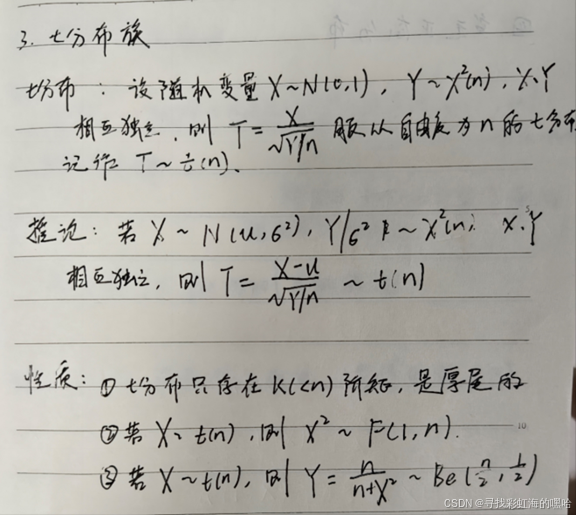 3. t分布族
t分布：设随机变量X~N(0,1), Y~χ²(n), X、Y
相互独立，则 T = X/√(Y/n) 服从自由度为n的t分布
记作 T~t(n).
推论：若 X~N(u,σ²), Y/σ² ~χ²(n), X、Y
相互独立，则 T = (X-u)/√(Y/n) ~ t(n)
性质：① t分布只存在K(<n)阶矩，是厚尾的
② 若X~t(n), 则 X² ~ F(1,n).
③ 若X~t(n), 则 Y = n/(n+X²) ~ Be(n/2, 1/2)
CSDN @寻找彩虹海的嘿哈